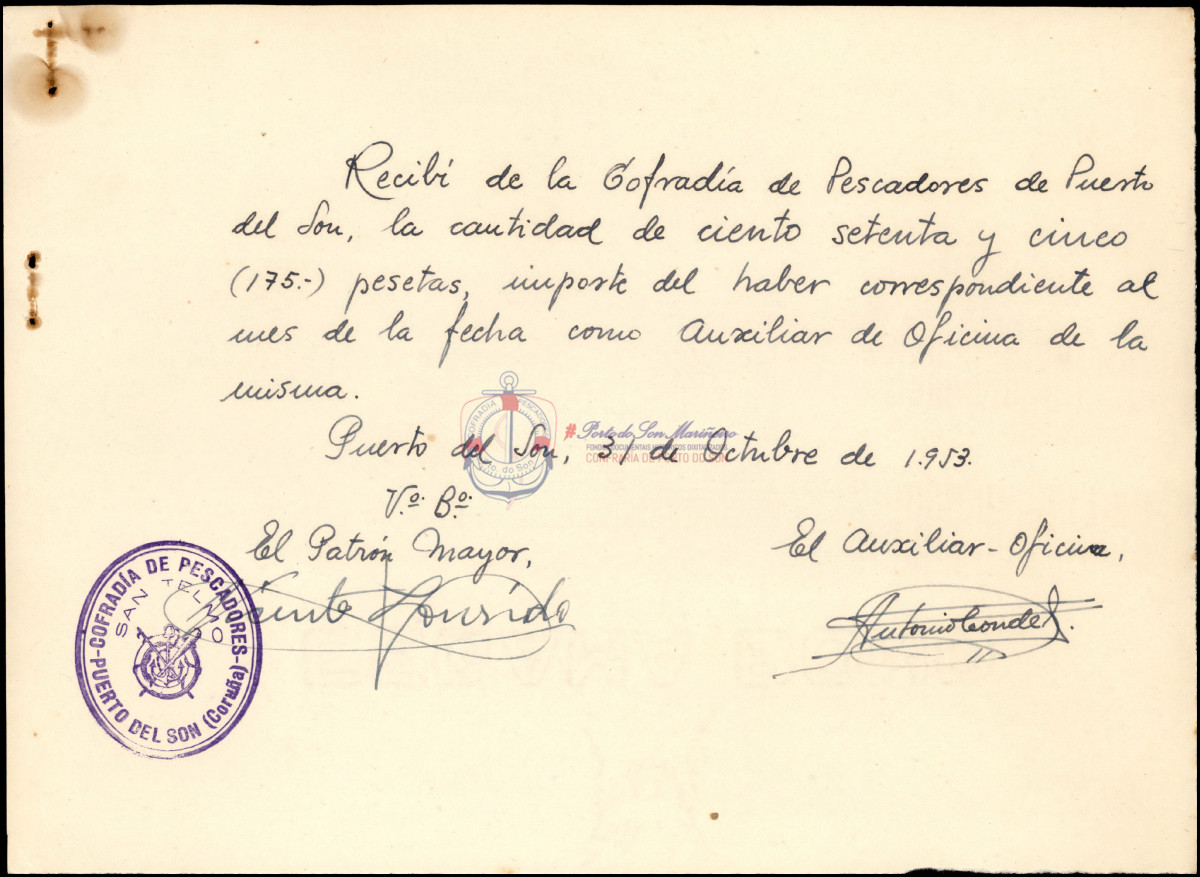 Recibí de la Cofradía de Pescadores de Puerto
del Son, la cantidad de ciento setenta y cinco
(175.-) pesetas, importe del haber correspondiente al
mes de la fecha como Auxiliar de Oficina de la
misma.
Puerto del Son, 31 de Octubre de 1.953.
COFRADIA PESCADORES
Pto. do Son
#PortodoSonMariñeiro
FONDOS DOCUMENTAIS HISTÓRICOS DIXITALIZADOS
CONFRARÍA DE PORTO DO SON
V.º B.º
El Patrón Mayor,
El Auxiliar-Oficina,
Antonio Conde
-COFRADÍA DE PESCADORES-
SAN TELMO
P-PUERTO DEL SON (Coruña)